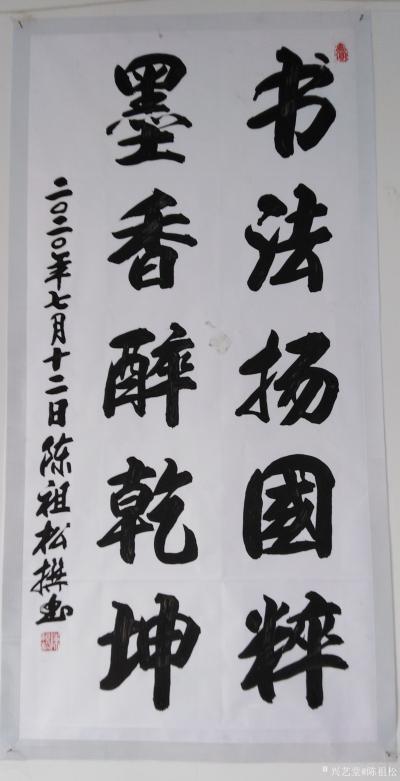 书法扬國粹
墨香醉乾坤
二〇二〇年七月十二日陈祖松撰书
兴艺堂@陈祖松